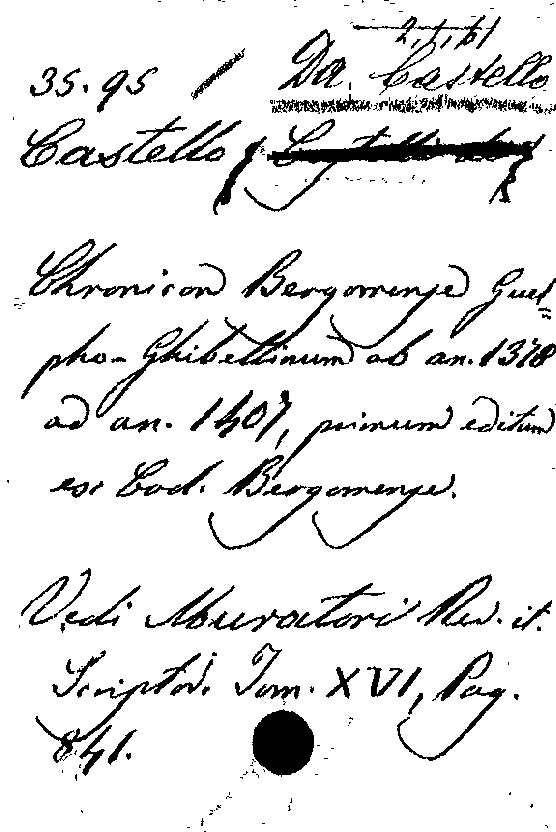 2,1,61
35.95 / Da Castello
Castello
Chronicon Bergomense Guel=
pho-Ghibellinum ab an. 1378
ad an. 1407, primum editum
ex Cod. Bergomense.
Vedi Muratori Rer. it.
Scriptor. Tom. XVI, Pag.
841.